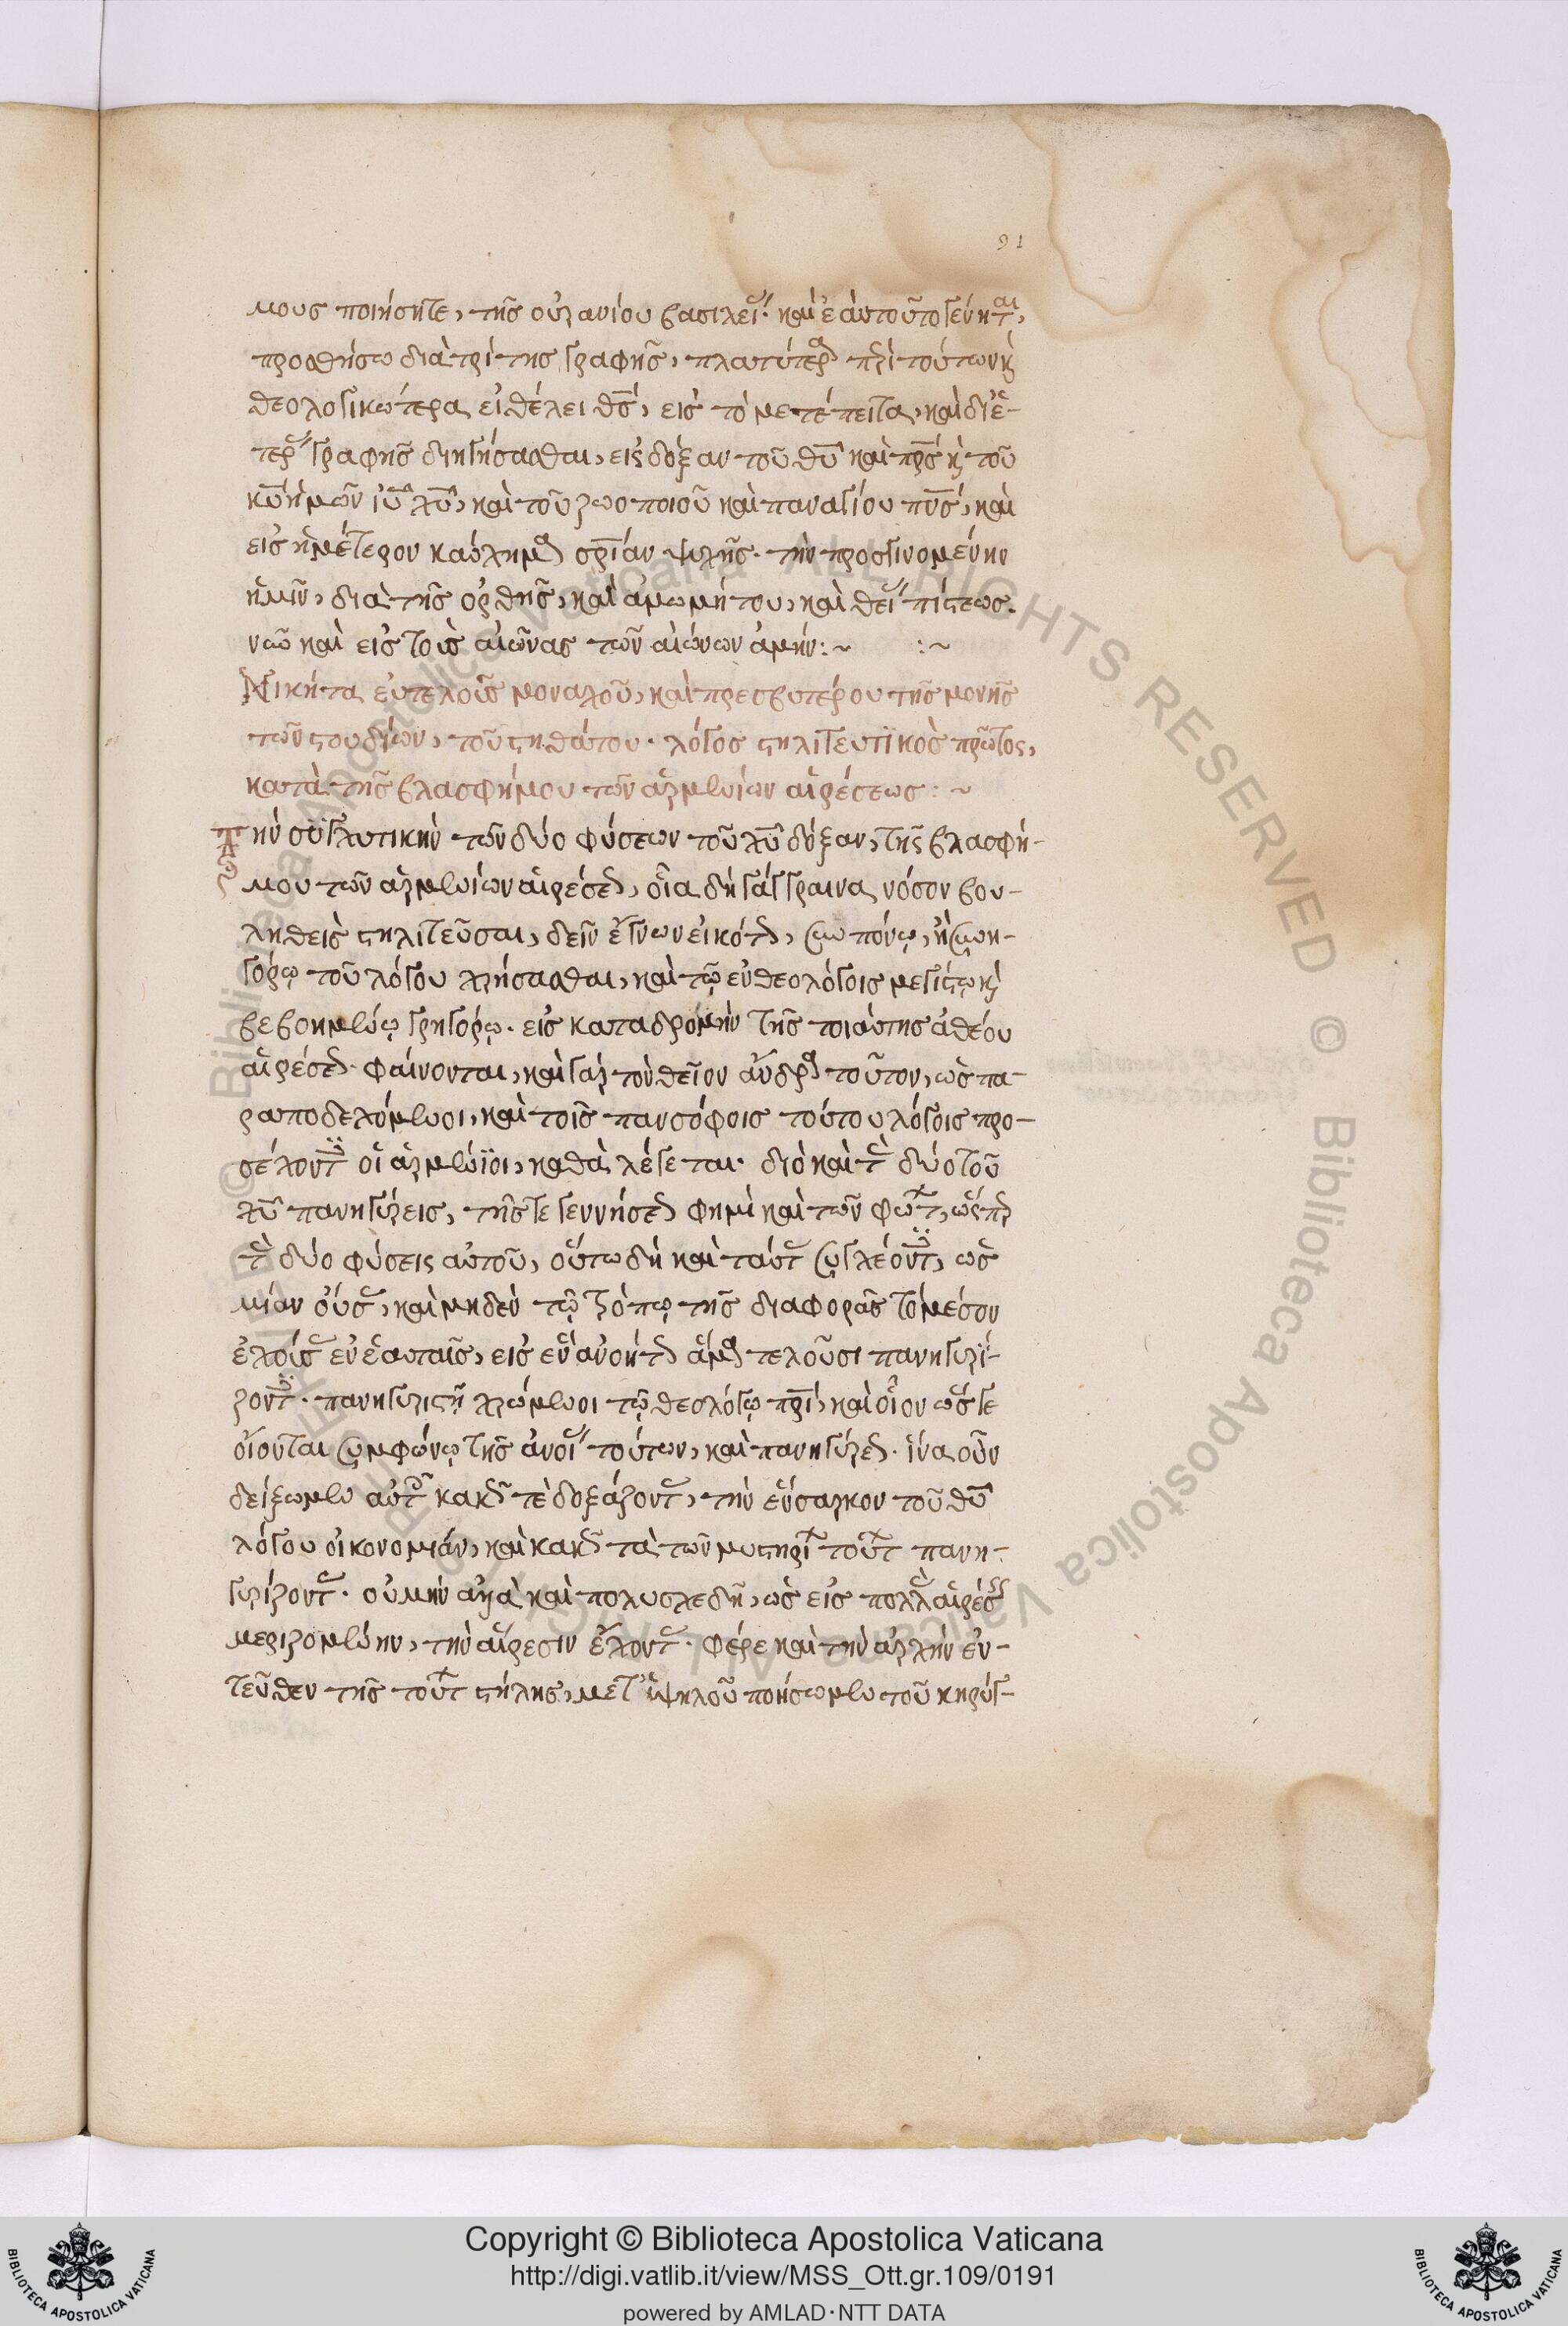 91
μους ποιήσητε, τῆς οὐρανίου βασιλεί· καὶ ἐὰν τοῦτο γένηται,
προσθήσω διὰ τρίτης γραφῆς, πλατύτερα περὶ τούτων κ
θεολογικώτερα, εἰ θέλει θς, εἰς τὸ μετέπειτα, καὶ δι ἑ-
τέρ γραφῆς διηγήσασθαι, εἰς δόξαν τοῦ θυ καὶ πρς κ τοῦ
κυ ἡμῶν ιυ χυ, καὶ τοῦ ζωοποιοῦ καὶ παναγίου πνς, καὶ
εἰς ἡμέτερον καύχημα σρίαν ψυχῆς. τὴν προσγινομένην
ἡμῖν, διὰ τῆς ὀρθῆς, καὶ ἀμωμήτου, καὶ θεί πίστεως.
νῦν καὶ εἰς τοὺς αἰῶνας τῶν αἰώνων ἀμήν:~ :~
Νικήτα εὐτελοῦς μοναχοῦ, καὶ πρεσβυτέρου τῆς μονῆς
τῶν στουδίων, τοῦ στηθάτου. λόγος στηλιτευτικὸς πρῶτος,
κατὰ τῆς βλασφήμου τῶν ἀρμενίων αἱρέσεως:~
Τὴν συγχυτικὴν τῶν δύο φύσεων τοῦ χυ δόξαν, τῆς βλασφή-
μου τῶν ἀρμενίων αἱρέσεως, οἷα δὴ γάγγραιναν νόσον βου-
ληθεὶς στηλιτεῦσαι, δεῖν ἔγνων εἰκότως, συμπόνῳ, ἢ συνη-
γόρῳ τοῦ λόγου χρήσασθαι, καὶ τῷ ἐν θεολόγοις μεγίστῳ κ
βεβοημένῳ γρηγορίῳ. εἰς καταδρομὴν τῆς τοιαύτης ἀθέου
αἱρέσεως. φαίνονται, καὶ γὰρ τὸν θεῖον ἄνδρα τοῦτον, ὡς πα-
ραποδεχόμενοι, καὶ τοῖς πανσόφοις τούτου λόγοις προ-
σέχοντες οἱ ἀρμένιοι, καθὰ λέγεται. διὸ καὶ τὰς δύο τοῦ
χυ πανηγύρεις, τῆς τε γεννήσεως φημὶ καὶ τῶν φώτων, ὥσπερ
τὰς δύο φύσεις αὐτοῦ, οὕτω δὴ καὶ ταύτας συγχέοντες, ὡς
μίαν οὔσας, καὶ μηδὲν τῷ τρόπῳ τῆς διαφορᾶς τὸ μέσον
ἐχούσας ἐν ἑαυταῖς, εἰς ἓν ἀνοήτως ἅμα τελοῦσι πανηγυρί-
ζοντες. πανηγυριστῇ χρώμενοι τῷ θεολόγῳ πρι, καὶ οἷον ὥς γε
οἴονται συμφώνῳ τῆς ἀνοί τούτων, καὶ πανηγύρεως. ἵνα οὖν
δείξωμεν αὐτοὺς κακῶς τὲ δοξάζοντας, τὴν ἔνσαρκον τοῦ θυ
λόγου οἰκονομίαν, καὶ κακῶς τὰ τῶν μυστηρίων τούτων πανη-
γυρίζοντας. οὐ μὴν ἀλλὰ καὶ πολυσχεδῆ, ὡς εἰς πολλὰς αἱρέσεις
μεριζομένην, τὴν αἵρεσιν ἔχοντας. φέρε καὶ τὴν ἀρχὴν ἐν-
τεῦθεν τῆς τούτων στήλης, μεθ ὑψηλοῦ ποιήσωμεν τοῦ κηρύγ-
Copyright © Biblioteca Apostolica Vaticana
http://digi.vatlib.it/view/MSS_Ott.gr.109/0191
powered by AMLAD·NTT DATA
BIBLIOTECA APOSTOLICA VATICANA
BIBLIOTECA APOSTOLICA VATICANA